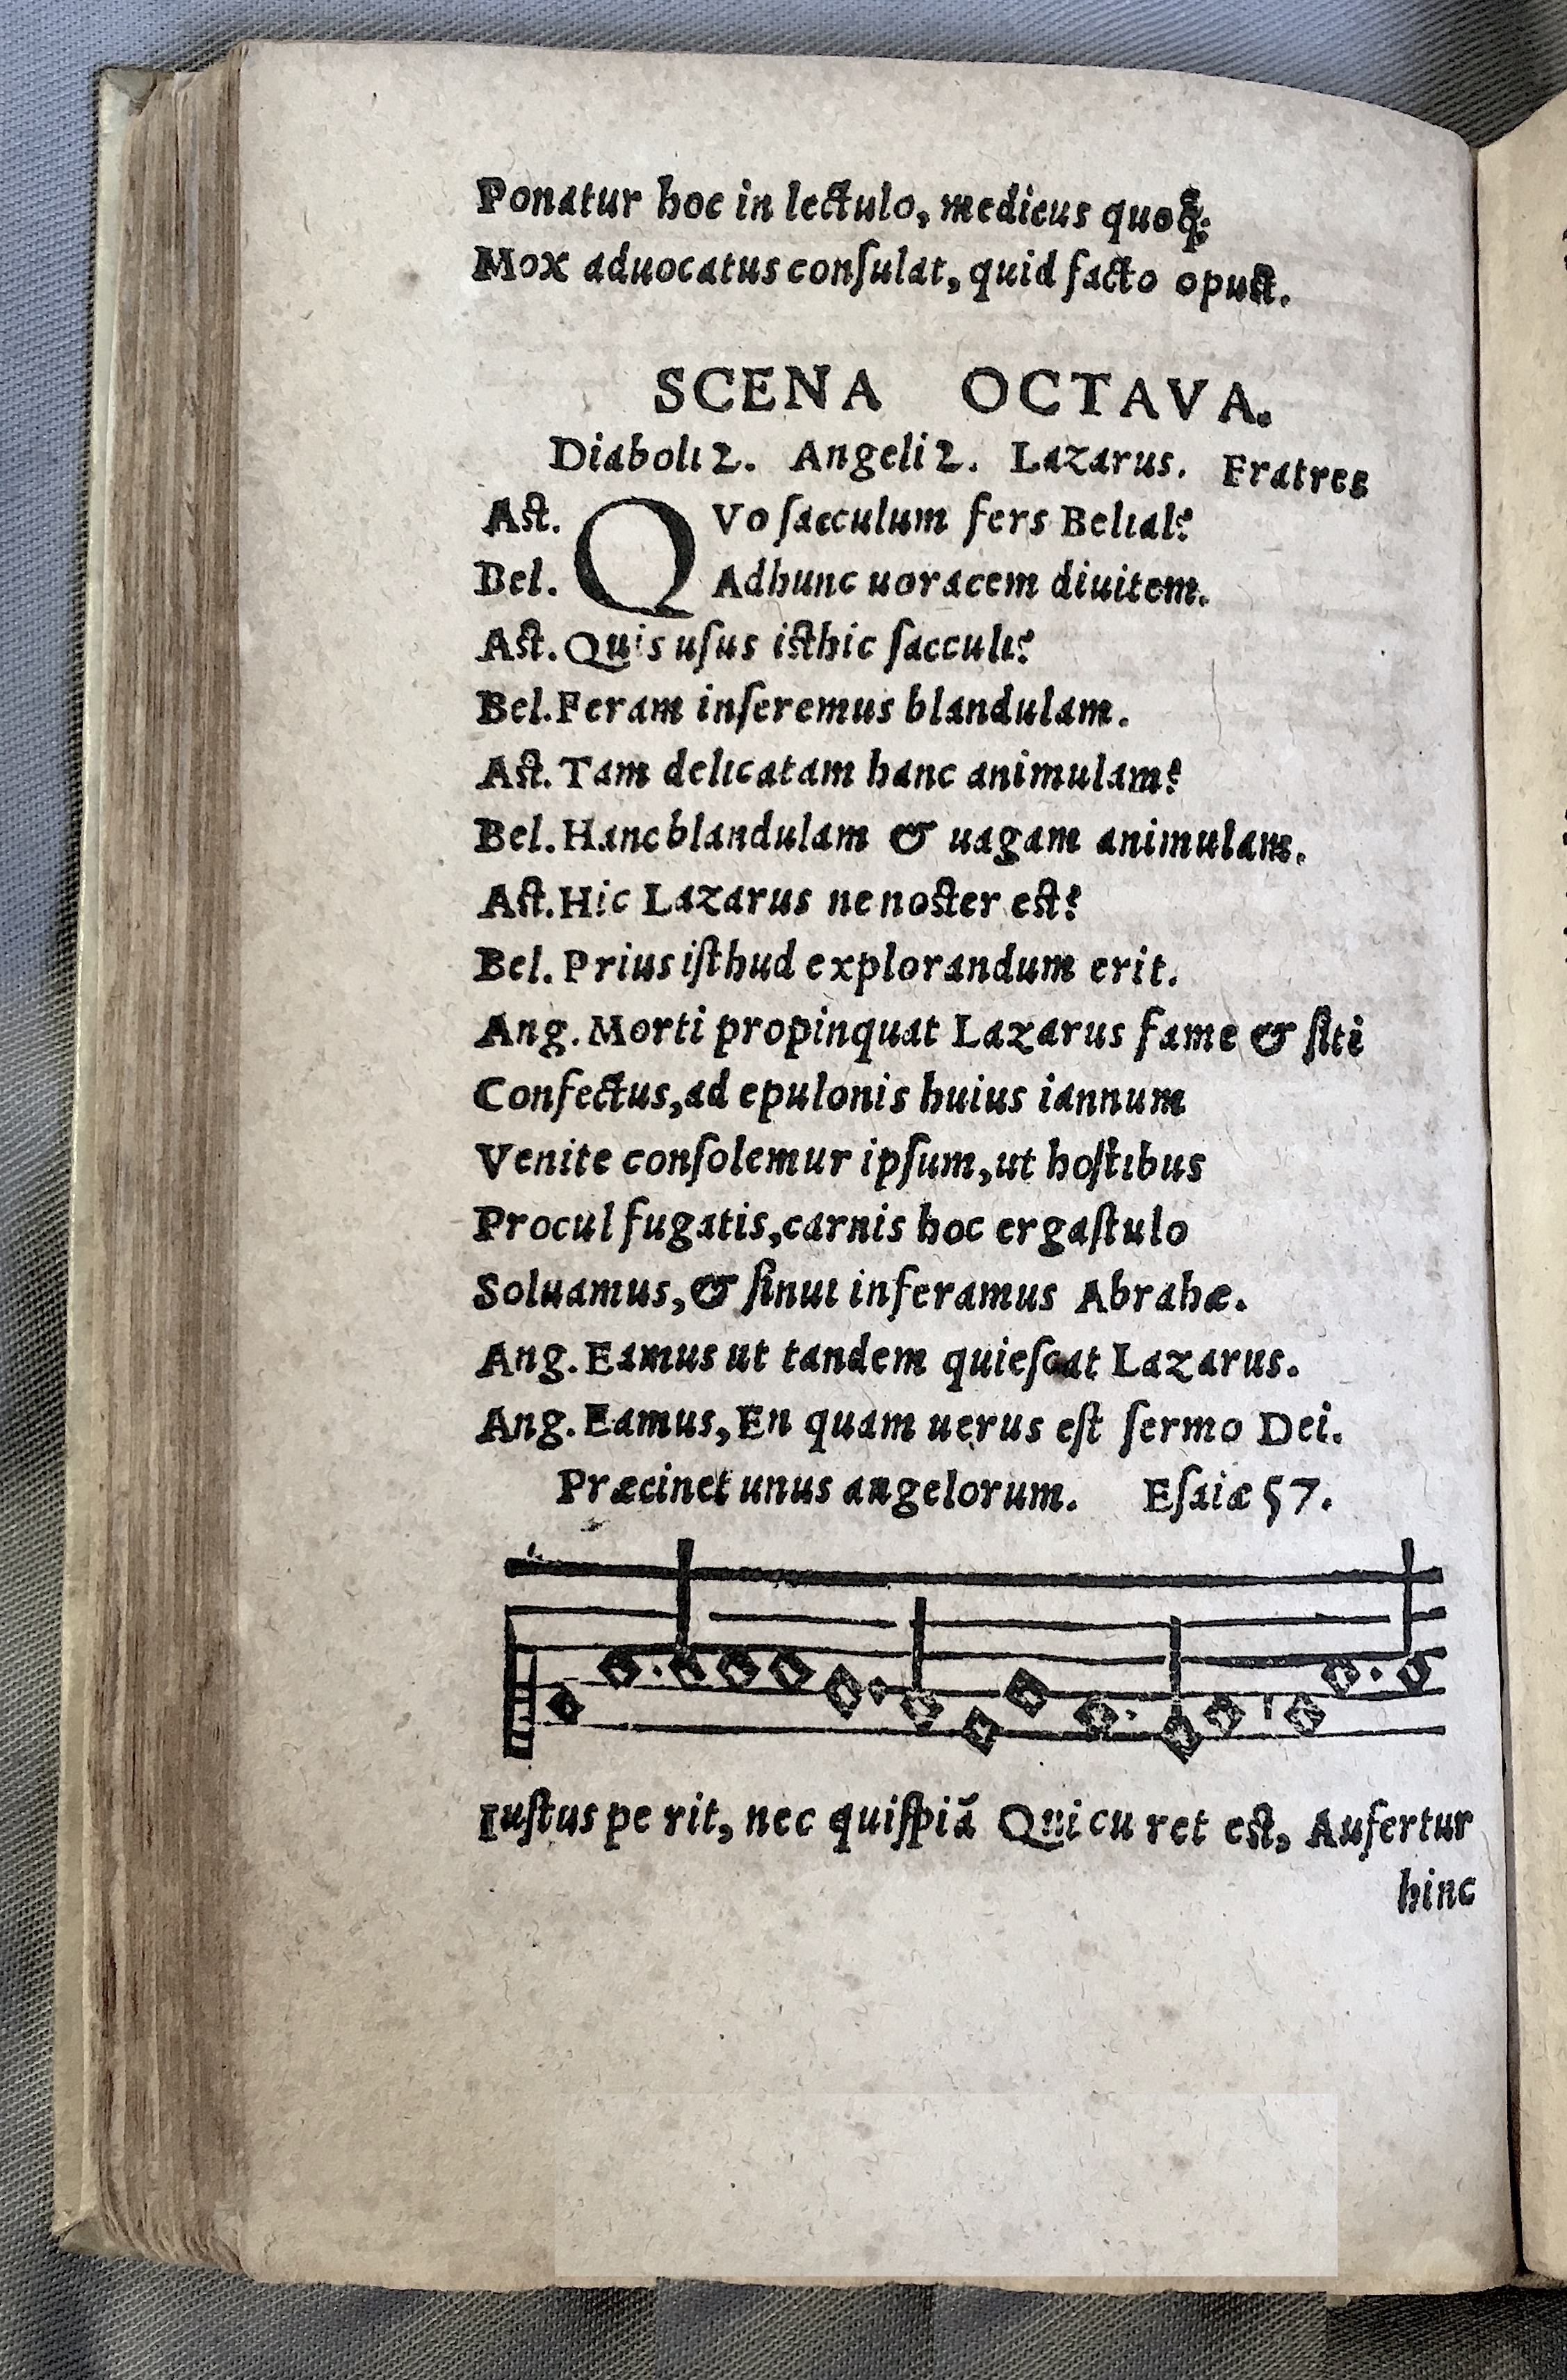 Ponatur hoc in lectulo, medicus quoq́;
Mox aduocatus conſulat, quid facto opuſt.
SCENA OCTAVA.
Diaboli 2. Angeli 2. Lazarus. Fratres
Aſt. QVo ſacculum fers Belial?
Bel. Ad hunc uoracem diuitem.
Aſt. Quis uſus iſthic ſacculi?
Bel. Feram inſeremus blandulam.
Aſt. Tam delicatam hanc animulam?
Bel. Hanc blandulam & uagam animulam.
Aſt. Hic Lazarus ne noſter eſt?
Bel. Prius iſthud explorandum erit.
Ang. Morti propinquat Lazarus fame & ſiti
Confectus, ad epulonis huius iannum
Venite conſolemur ipſum, ut hoſtibus
Procul fugatis, carnis hoc ergaſtulo
Soluamus, & ſinui inferamus Abrahæ.
Ang. Eamus ut tandem quieſcat Lazarus.
Ang. Eamus, En quam uerus eſt ſermo Dei.
Præcinet unus angelorum. Eſaiæ 57.
Iuſtus pe rit, nec quiſpiã Qui cu ret eſt, Aufertur
hinc